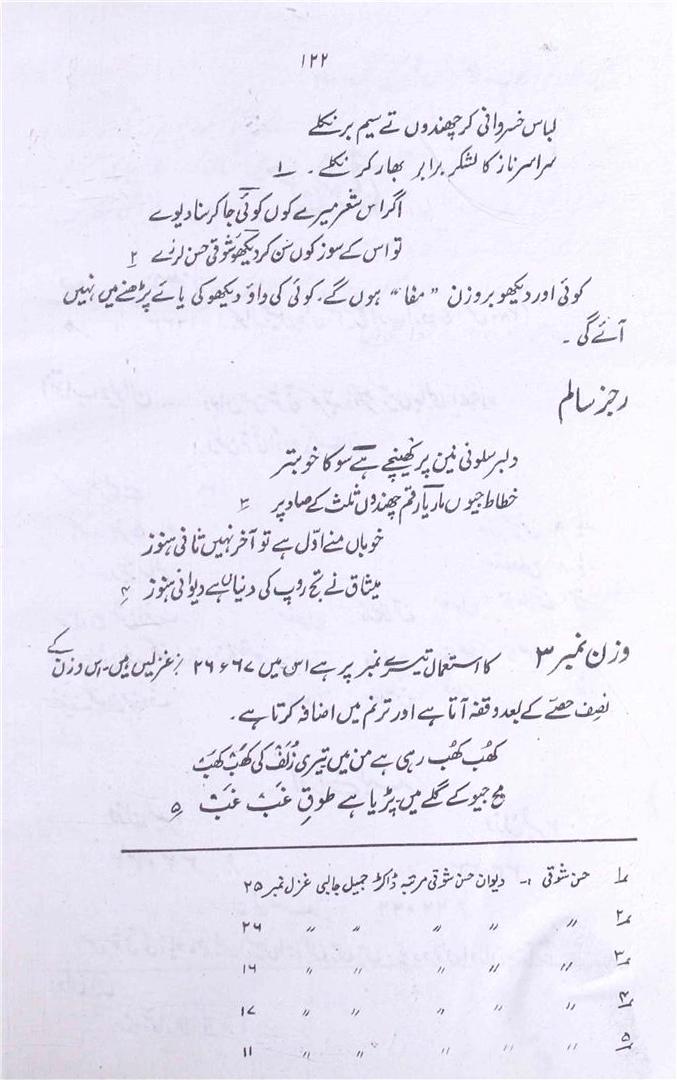 ۱۲۲
لباس خسروانی کر چھندوں تے سیم بر نکلے
سراسر ناز کا لشکر برابر بھار کر نکلے ۔ ۱
اگر اس شعر میرے کوں کوئی جا کر سنا دیوے
تو اس کے سوز کوں سن کر دیکھو شوقی حسن لرزے ۲
کوئی اور دیکھو بروزن "مفا" ہوں گے۔ کوئی کی واؤ دیکھو کی یائے پڑھنے میں نہیں
آئے گی ۔
رجز سالم
دلبر سلونی نین پر کھینچے ہے سو کا خوبتر
خطاط جیوں ماریا رقم چھندوں ثلث کے صاد پر ۳
خوباں منے اوّل ہے تو آخر نہیں ثانی ہنوز
میثاق نے تج روپ کی دنیا ہے دیوانی ہنوز ۴
وزن نمبر ۳ کا استعمال تیسرے نمبر پر ہے اس میں ۶۷ء۲۶ ٪ غزلیں ہیں۔ اس وزن کے
نصف حصے کے بعد وقفہ آتا ہے اور ترنم میں اضافہ کرتا ہے۔
کھُب کھُب رہی ہے من میں تیری زُلَف کی کھَب کھَب
مج جیو کے گلے میں پڑیا ہے طوقِ غَب غَب ۵
۱؎ حسن شوقی :- دیوان حسن شوقی مرتبہ ڈاکٹر جمیل جالبی غزل نمبر ۲۵
۲؎〃 〃 〃 〃 〃 〃 ۲۶
۳؎ 〃 〃 〃 〃 〃 ۱۶
۴؎ 〃 〃 〃 〃 〃 ۱۷
۵؎ 〃 〃 〃 〃 〃 ۱۱